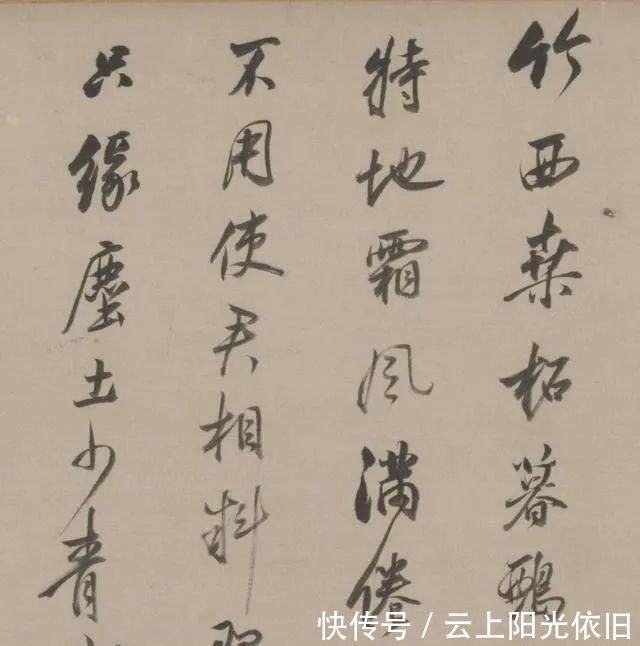 竹西桑柘暮鵶
特地霜風滿倦
不用使君相料
只緣塵土少青
快传号/云上阳光依旧